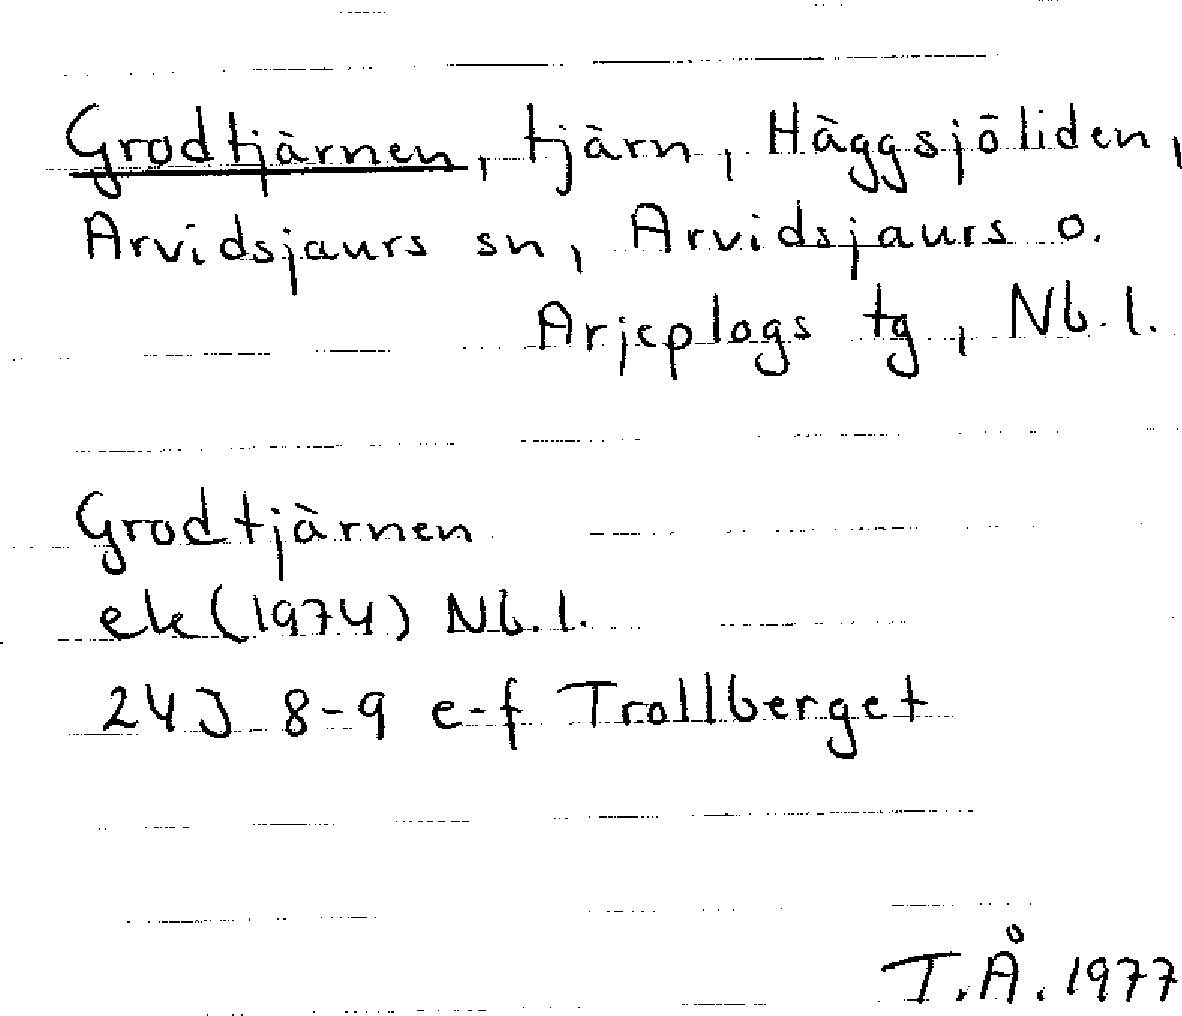 Grodtjärnen, tjärn, Häggsjöliden,
Arvidsjaurs sn, Arvidsjaurs o.
Arjeplogs tg, Nb. l.
Grodtjärnen
ek (1974) Nb. l.
24J 8-9 e-f Trollberget
T.Å. 1977